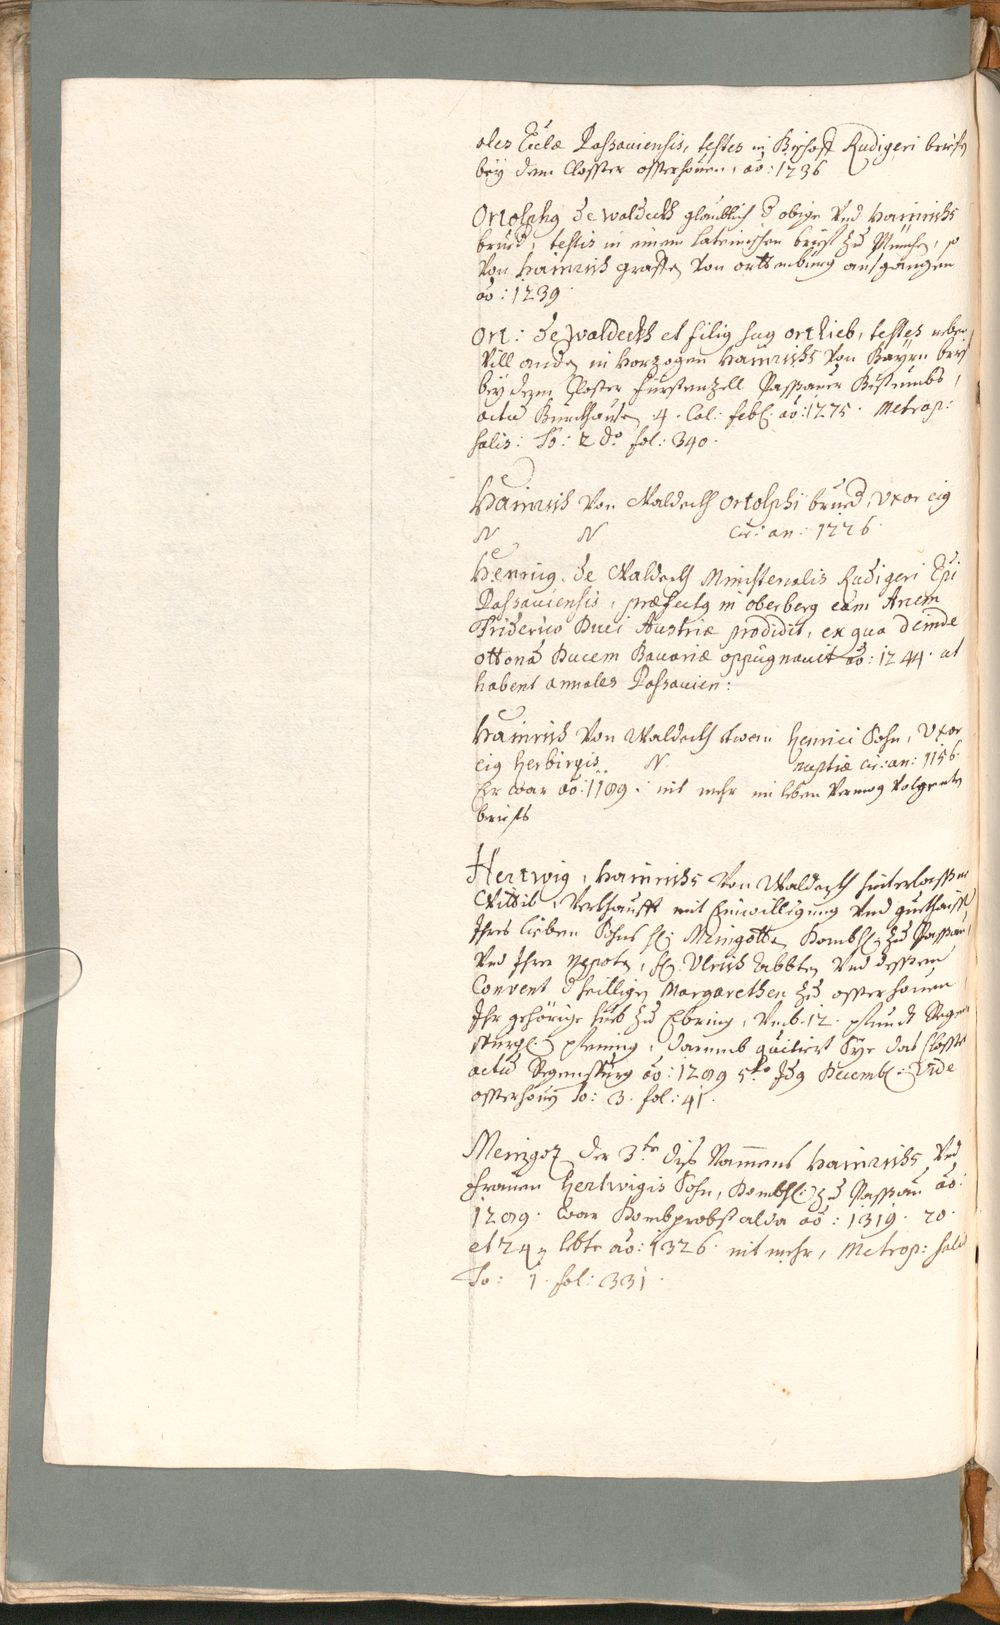 ales Eccl&ae Passauiensis, testes in Bischoff Rudigeri brieff
bey dem Closster osterhouen, ao: 1236
Ortolphg de Waldeckh glaublich d obige Vnd Hainrichs
brued, testis in einem lateinischen brieff zu München, so
Von Hainrich graffen Von orttenburg aussgangen
ao: 1239
Ort: de Waldeckh et filig sug ortlieb, testes neben
Vill andn in Herzogen Hainrichs Von Bayrn brieff
bey dem Closter Fürstenzell Passauer Bistumbs,
actu Burckhausen 4. Cal: febr: ao: 1275. Metrop:
salis: To: 2do fol: 340.
Hainrich Von Waldeckh ortolphi brued, Vxor eig
N N Cir: an: 1226
Henricg de Waldeckh Ministerialis Rudigeri Epi
Passauiensis, præfectg in oberberg eam Arcem
Friderico Duci Austriæ prodidit, ex qua deinde
ottonē Ducem Bauariæ oppugnauit ao: 1244. ut
habent annales Passauien:
Hainrich Von Waldeckh etwan Henrici Sohn, Vxor
eig Herbirgis N. nuptiæ cir: an: 1156.
Er war ao: 1189: nit mehr im leben Vermog Volgents
brieffs
Hertwig, Hainrichs Von Waldeckh hinterlassne
Wittib, Verkhaufft mit Einwilligung Vnd guethaissen
Ihres lieben Sohns H: Meingotten Dombh: zu Passau,
Vnd Ihrn Nepoten, H: Ulrich Abbten Vnd dessen
Convent d heilligen Margarethen zu osterhouen
Ihr gehörige hueb zu Ebring, Vmb 12. pfundt Regen
spurg: pfening, darumb quitiert Sye das Closster
actu Regenspurg ao: 1289 5to Idg Decemb: Vide
osterhouen To: 3. fol: 41.
Meingoz der 3te diss Nammens Hainrichs Vnd
frauen Hertwigis Sohn, Dombh: zu Passau ao:
1289. war Dombprobst alda ao: 1319. 20.
et 24, lebte ao: 1326. nit mehr, Metrop: salis
To: 1. fol: 331.